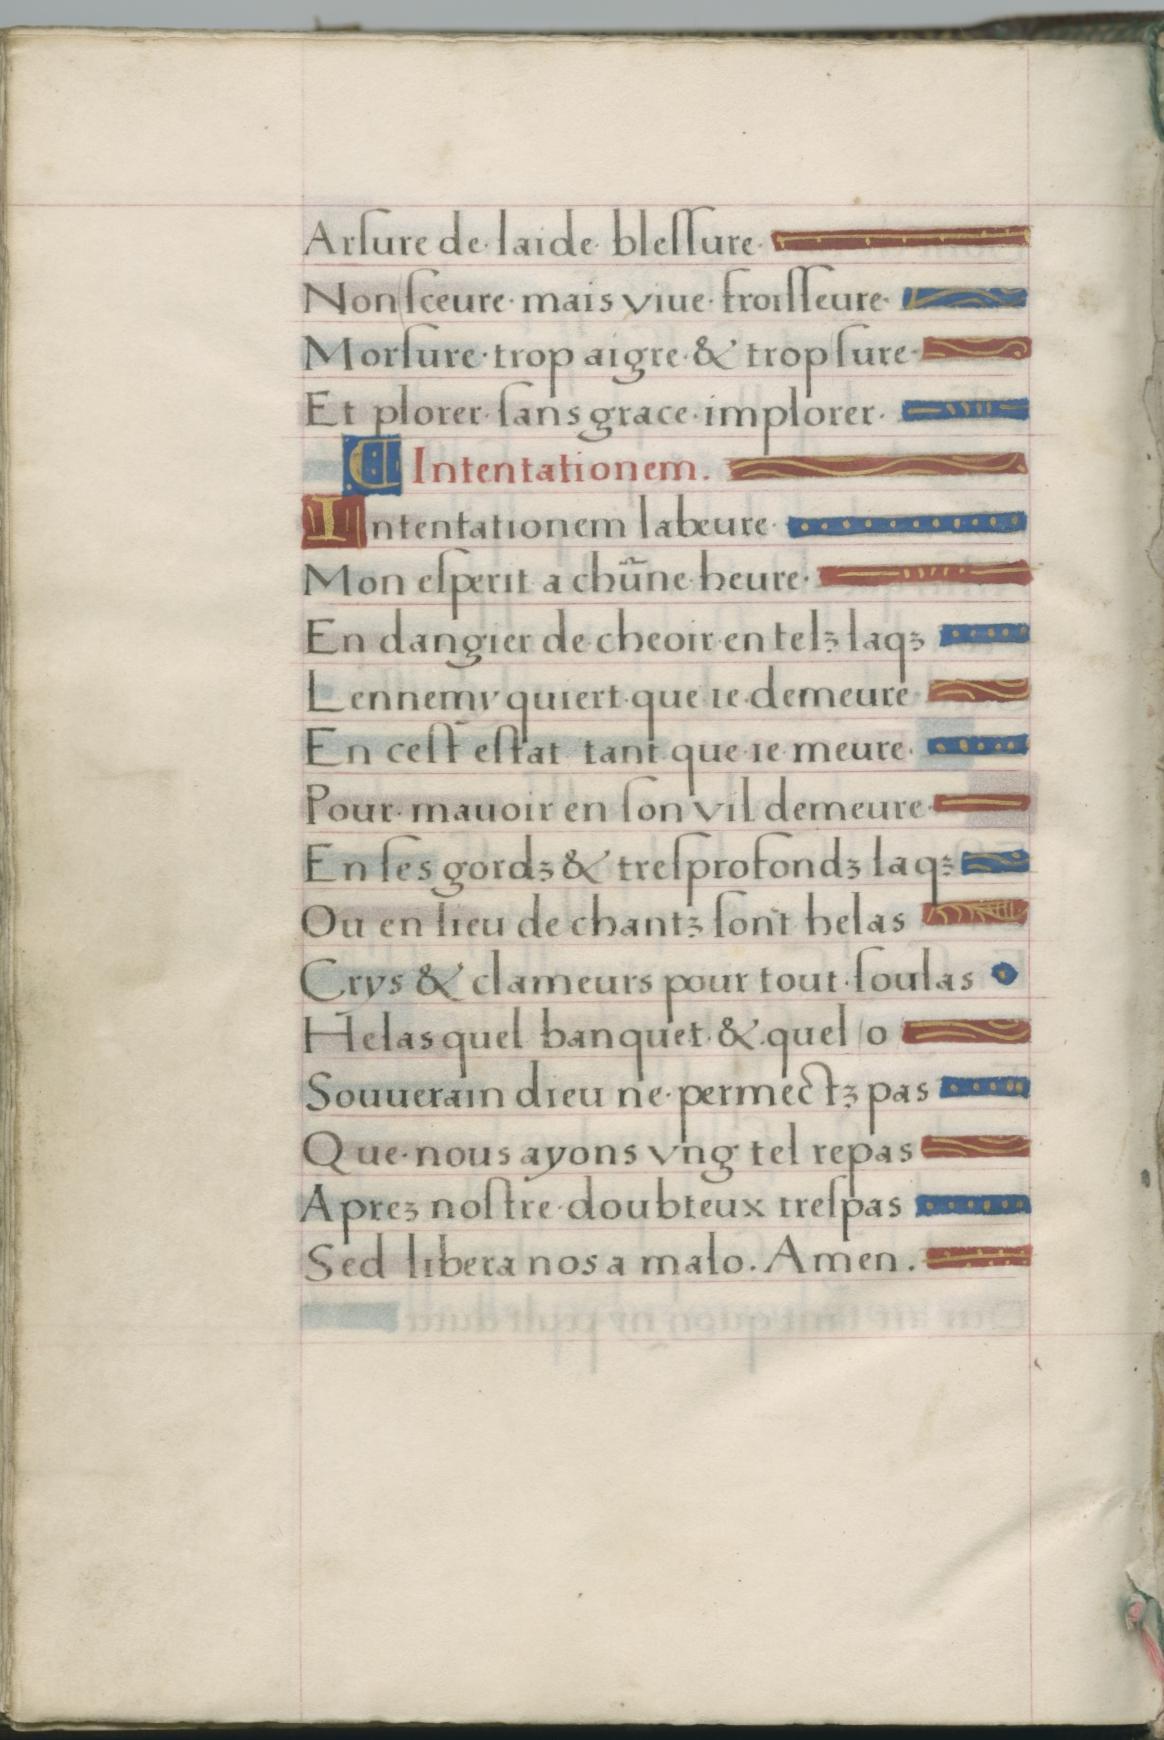 Arſure de· laide· bleſſure·
Non ſceure· mais viue· froiſſeure·
Morſure· trop aigre· & trop ſure·
Et plorer· ſans grace· implorer·
¶ Intentationem.
Intentationem labeure·
Mon eſperit a chũne· heure·
En dangier de· cheoir· en telꝫ laqꝫ
Lennemy quiert· que ie· demeure
En ceſt eſtat tant· que· ie· meure·
Pour· mauoir en ſon vil demeure·
En ſes gordꝫ & treſprofondꝫ laqꝫ
Ou en lieu de chantꝫ ſont helas
Crys & clameurs pour tout· ſoulas
Helas quel banquet· &· quel o
Souuerain dieu ne· permectꝫ pas
Que· nous ayons vng tel repas
Apreꝫ noſtre· doubteux treſpas
Sed libera nos a malo. Amen.